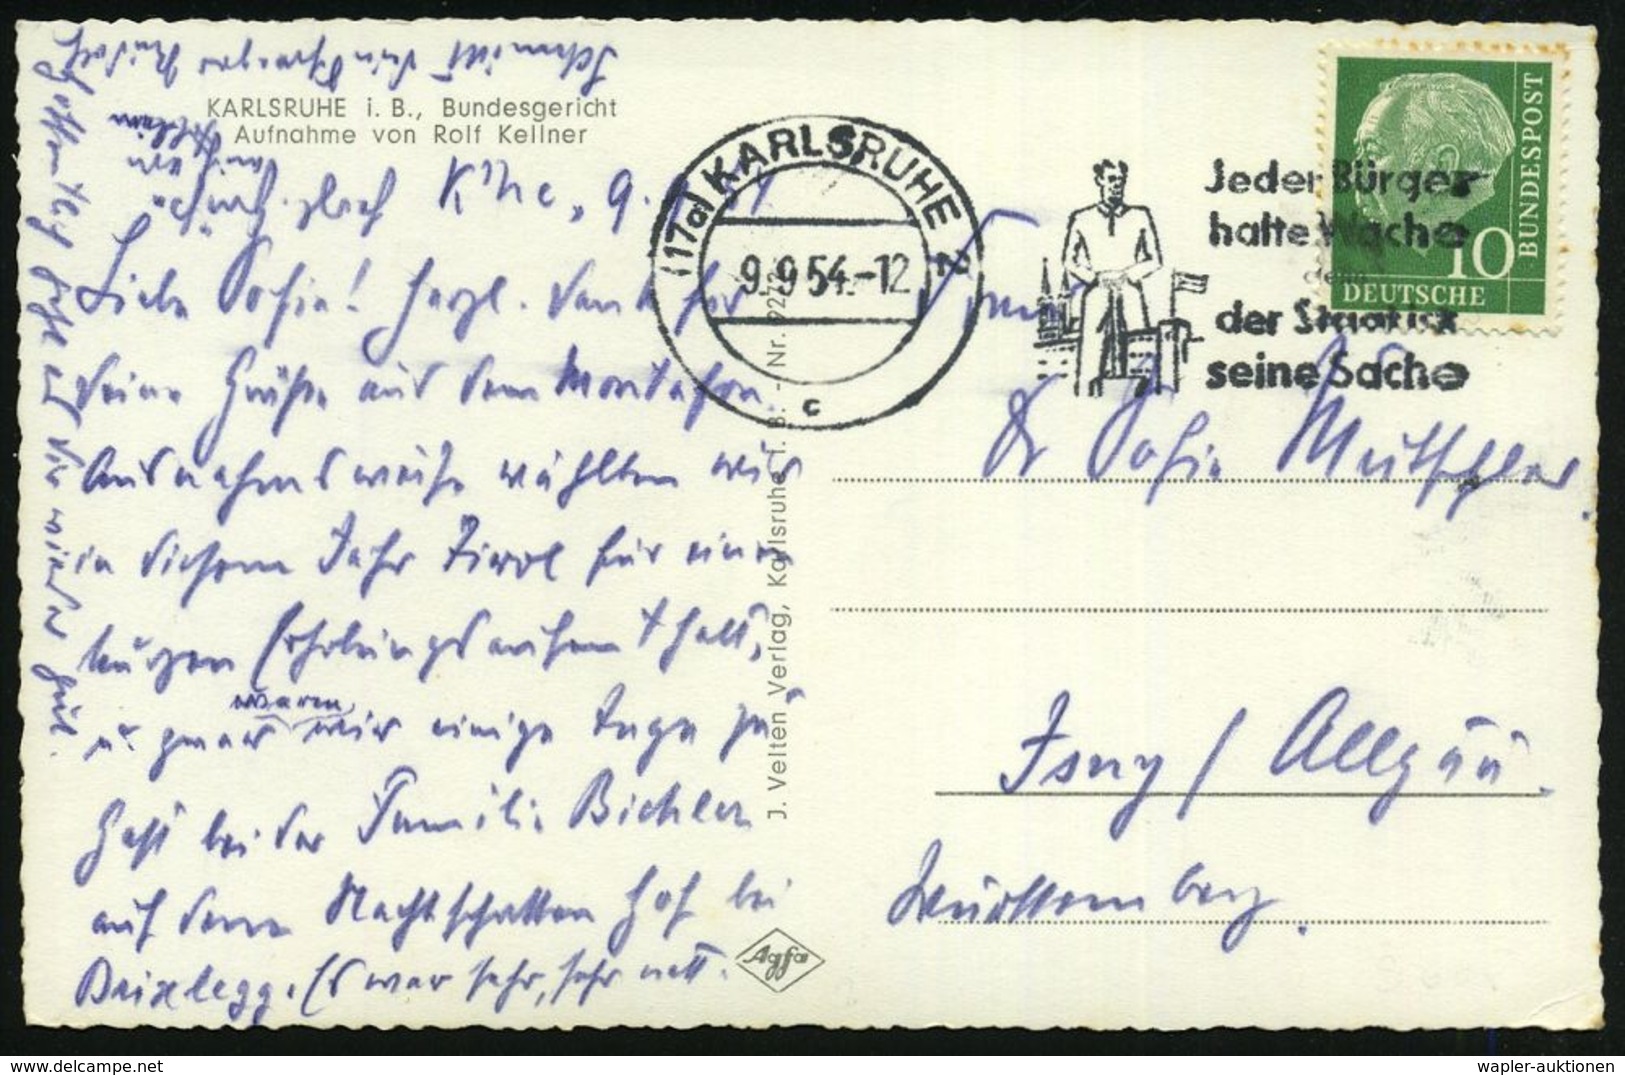 KARLSRUHE i. B., Bundesgericht
Aufnahme von Rolf Kellner
K'he, 9.
Liebe Sofie! Herzl. Dank für
Deine Grüße aus dem Montafon
Ausnahmsweise wählten wir
in diesem Jahr Tirol für einen
kurzen Erholungsaufenthalt,
u. zwar waren wir einige Tage zu
Gast bei der Familie Bichler
auf dem Nachtschatten Hof bei
Brixlegg. Es war sehr, sehr nett.
Hoffentlich geht es Dir wieder gut.
J. Velten Verlag, Karlsruhe i. B. - Nr.
Agfa
(17a) KARLSRUHE 2
9.9.54.-12
c
Jeder Bürger
halte Wache
denn
der Staat ist
seine Sache
DEUTSCHE
BUNDESPOST
10
Dr Sofie Mutschler
Isny / Allgäu.
Württemberg.
wapler-auktionen